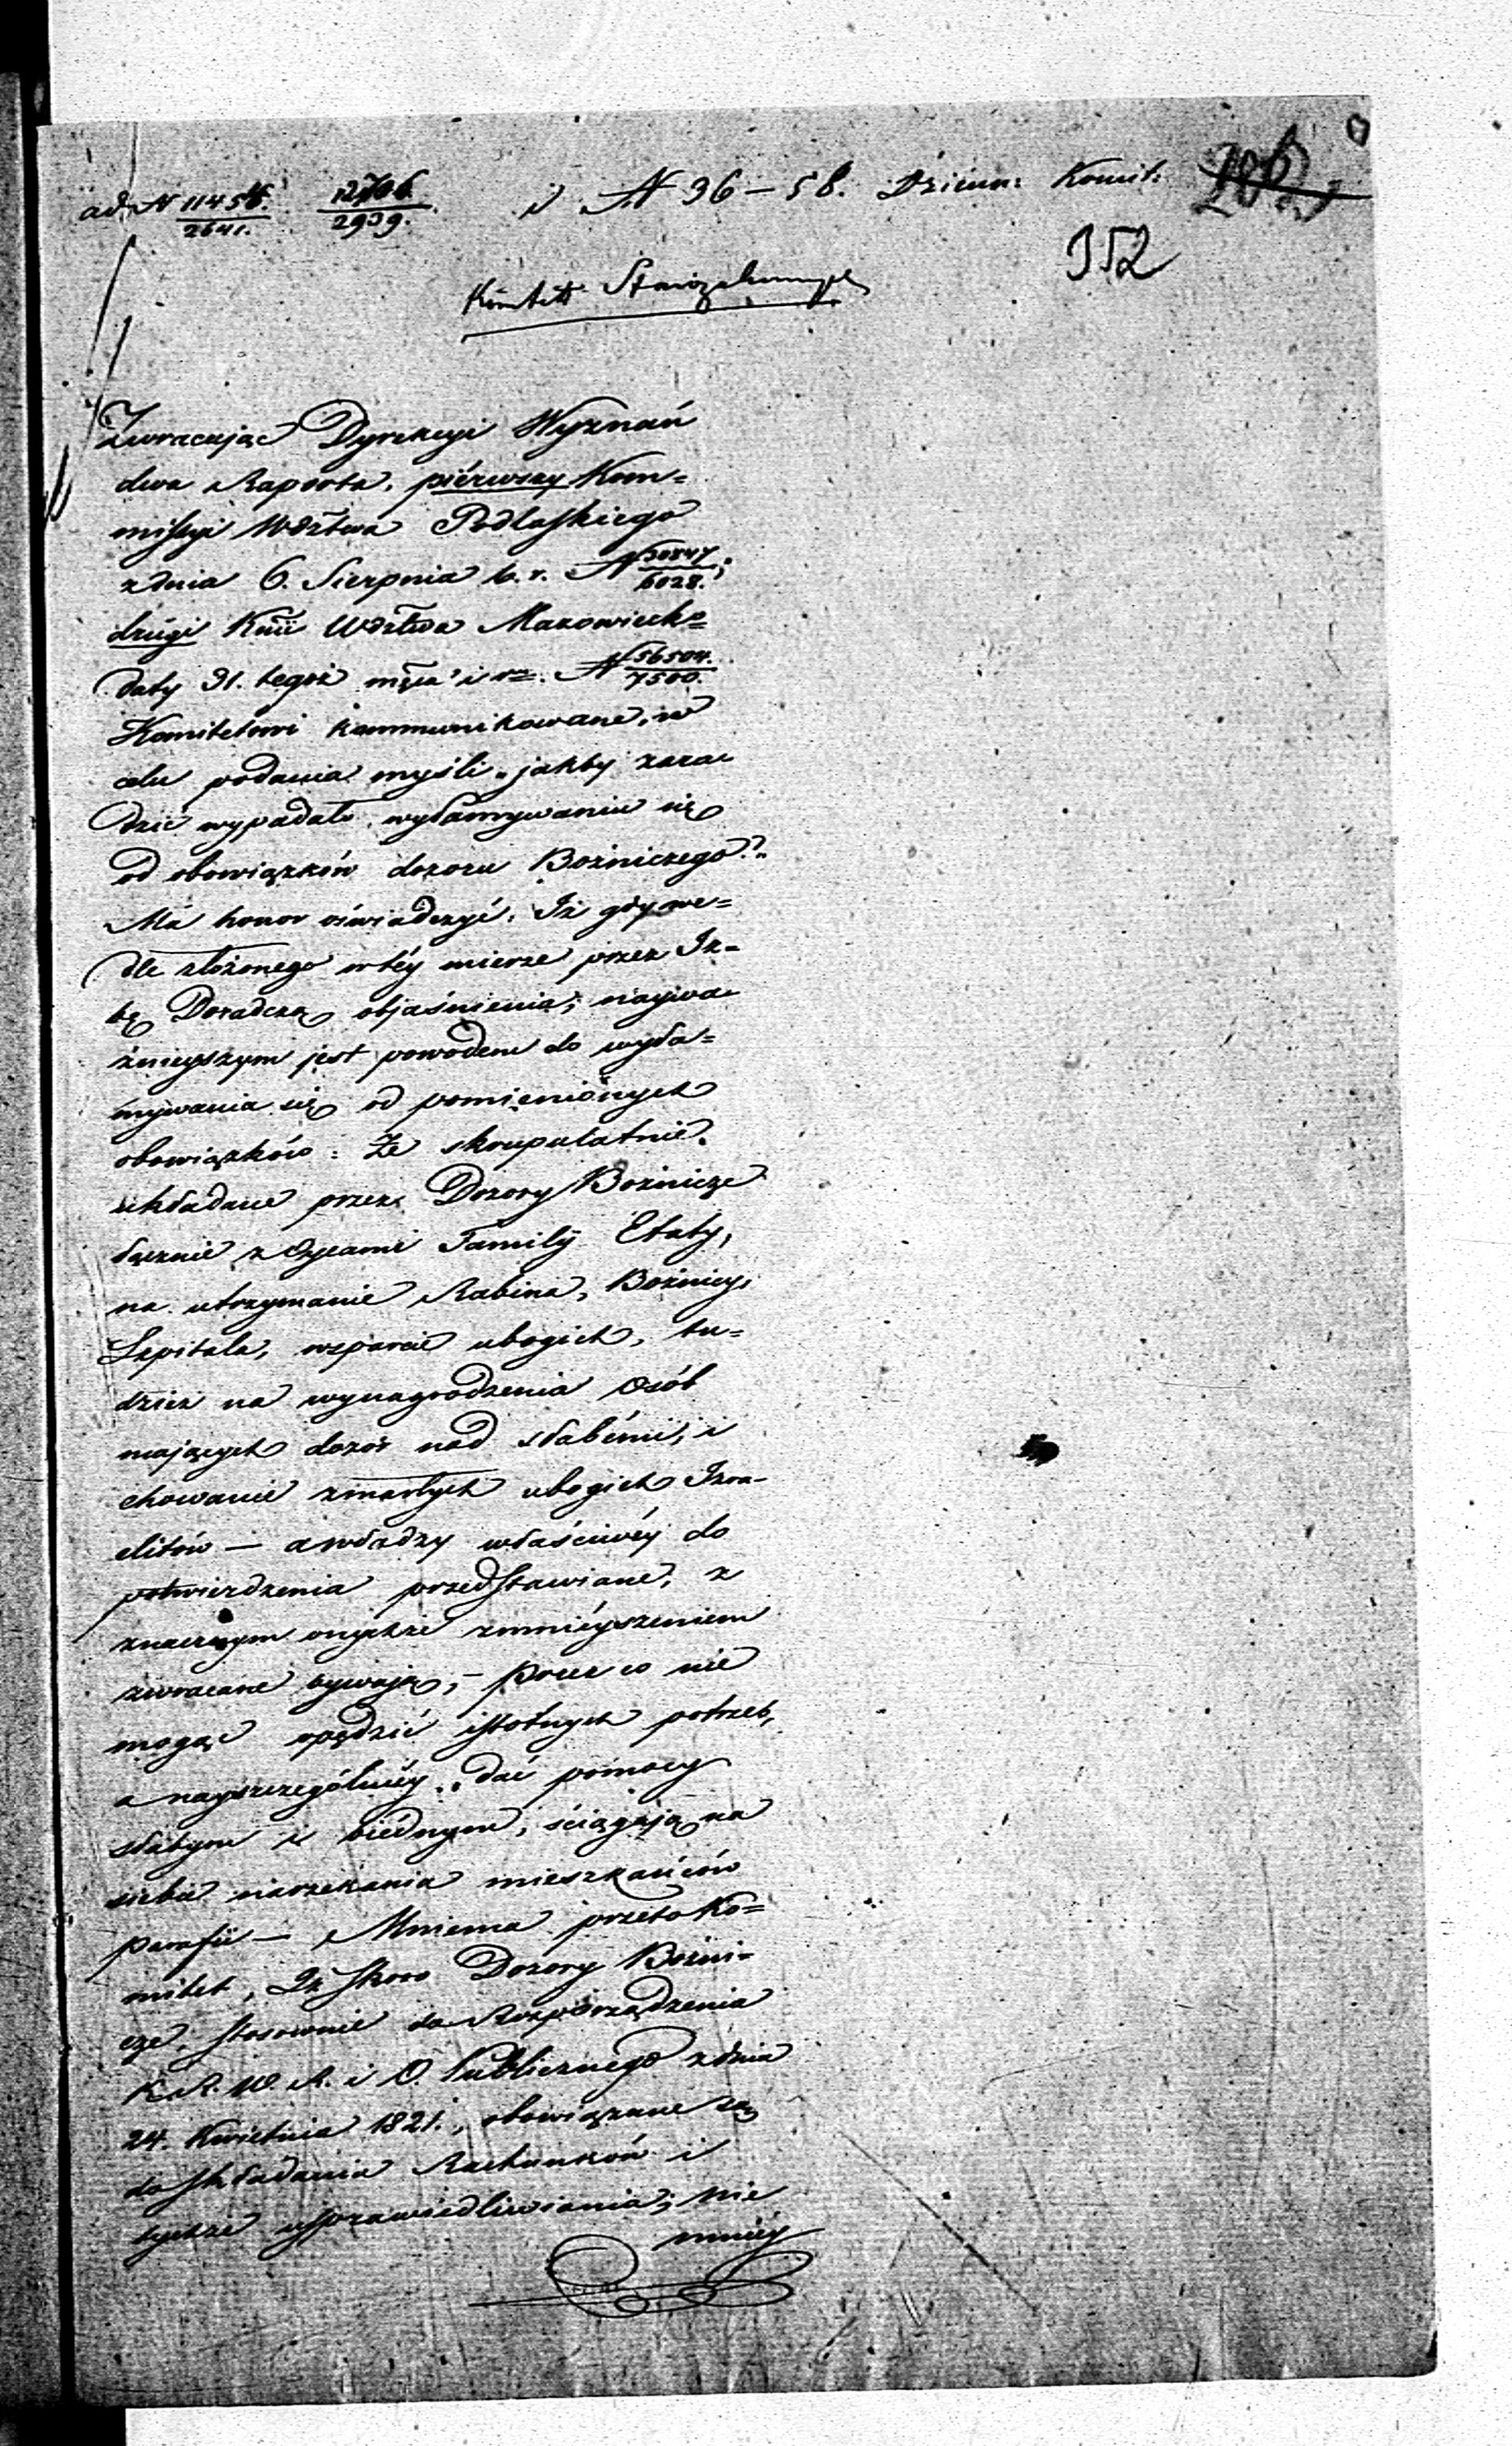 ad N 11456/2641. 12706/2939. i N 36–58. Dzienn: Komit:
352
Komitet Starozakonnych
Zwracając Dyrekcyi Wyznań
dwa Raporta, piérwszy Kom=
missyi Wdztwa Podlaskiego
z dnia 6. Sierpnia b. r. N 30847/6028.;
drugi Kmii Wdztwa Mazowieck=
daty 31. tegoż mca i r. N 56504./7500.
Komitetowi kommunikowane, w
celu podania myśli „jakby zara
dzić wypadało wyłamywaniu się
od obowiązków dozoru Bożniczego?„
Ma honor oświadczyć, Iż gdy we=
dle złożonego w téy mierze przez Iz=
bę Doradczą objaśnienia; naywa
żnieyszym jest powodem do wyła=
mywania się od pomienionych
obowiązków: Że skrupulatnie
układane przez Dozory Bożnicze
łącznie z Oycami Familÿ Etaty,
na utrzymanie Rabina, Bożnicy,
Szpitala, wsparcie ubogich, tu=
dzież na wynagrodzenia Osób
mających dozór nad słabémi, i
chowanie zmarłych ubogich Izra-
elitów — a władzy właściwéy do
potwierdzenia przedstawiane, z
znacznym onychże zmnieyszeniem
zwracane bywają, – przez co nie
mogąc opędzić istotnych potrzeb,
a nayszczególniéy dać pomocy
słabym i biednym, ściągają na
siebie narzekania mieszkańców
parafii — Mniema przeto Ko=
mitet, Iż skoro Dozory Bożni=
cze, stosownie do Rozporządzenia
K. R. W. R. i O. Publicznego z dnia
24. Kwietnia 1821., obowiązane są
do składania Rachunków i
tychże usprawiedliwiania; nie
mniéy